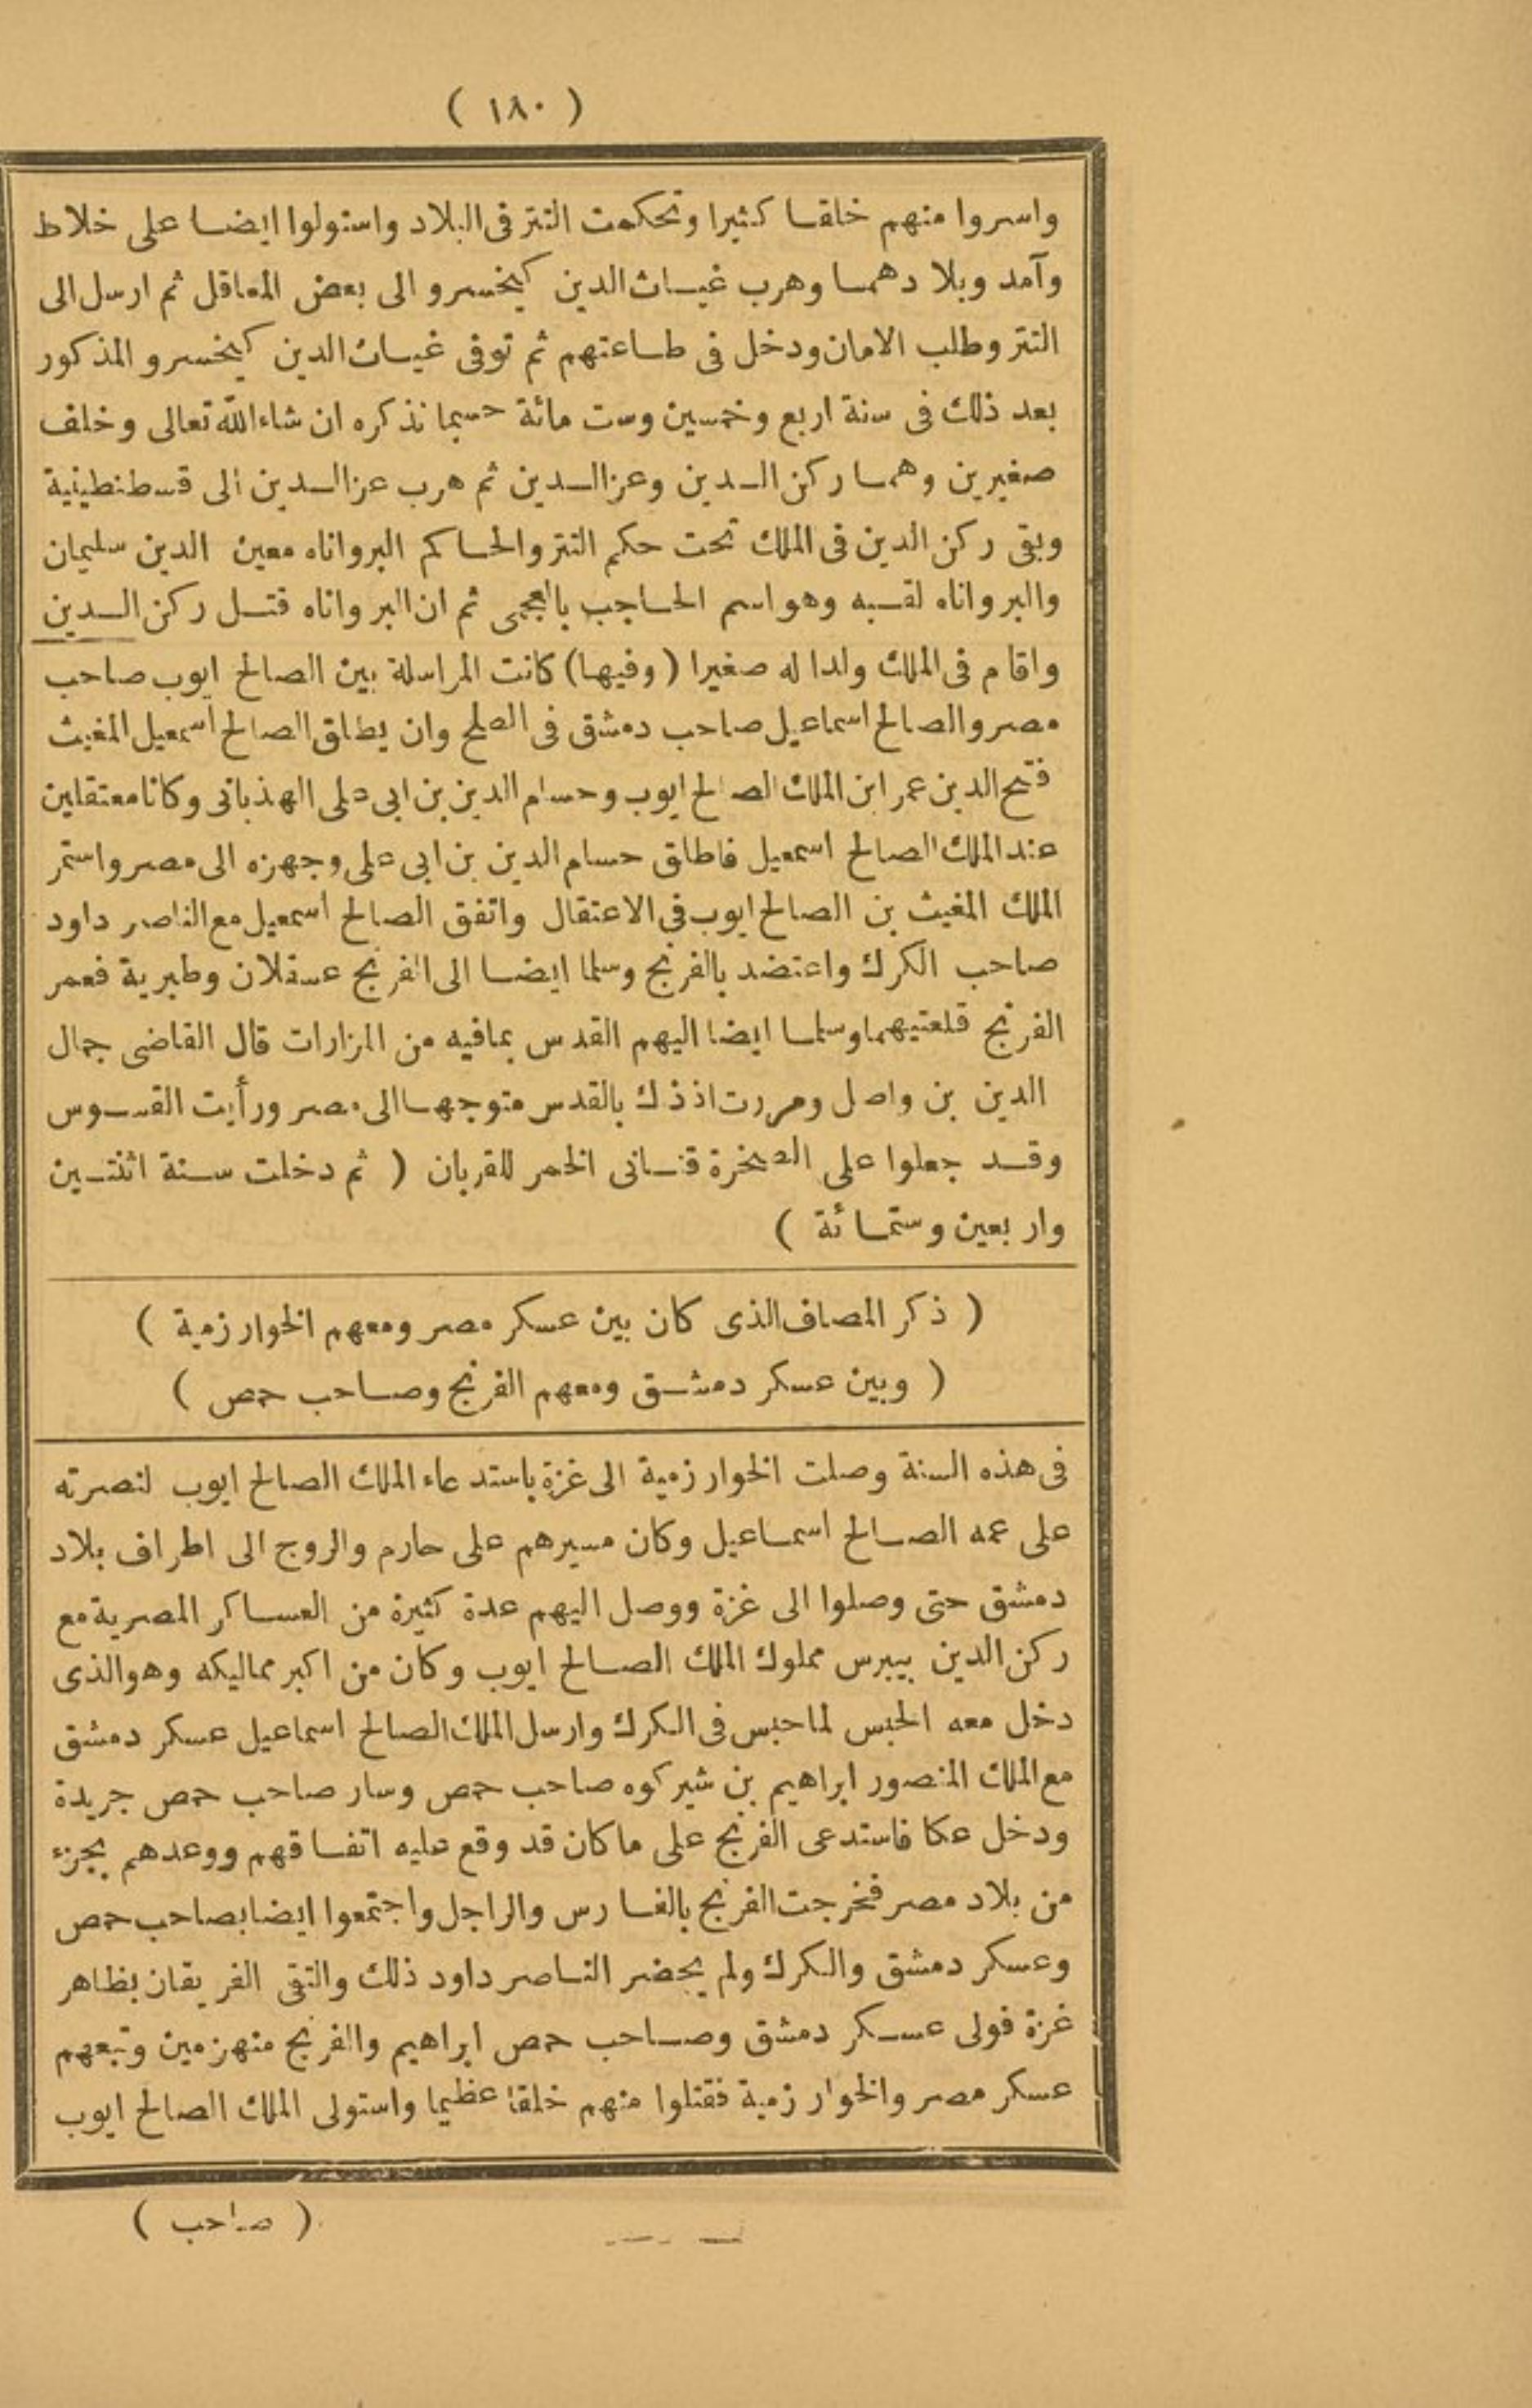 ( ١٨٠ )
واسروا منهم خلقا كثيرا وتحكمت التتر فى البلاد واستولوا ايضا على خلاط
وآمد وبلادهما وهرب غياث الدين كيخسرو الى بعض المعاقل ثم ارسل الى
التتر وطلب الامان ودخل فى طاعتهم ثم توفى غياث الدين كيخسرو المذكور
بعد ذلك فى سنة اربع وخمسين وست مائة حسبما نذكره ان شاء الله تعالى وخلف
صغيرين وهما ركن الدين وعز الدين ثم هرب عز الدين الى قسطنطينية
وبقى ركن الدين فى الملك تحت حكم التتر والحاكم البرواناه معين الدين سليمان
والبرواناه لقبه وهو اسم الحاجب بالعجمى ثم ان البرواناه قتل ركن الدين
واقام فى الملك ولدا له صغيرا (وفيها) كانت المراسلة بين الصالح ايوب صاحب
مصر والصالح اسماعيل صاحب دمشق فى الصلح وان يطلق الصالح اسمعيل المغيث
فتح الدين عمر ابن الملك الصالح ايوب وحسام الدين بن ابى على الهذبانى وكانا معتقلين
عند الملك الصالح اسمعيل فاطلق حسام الدين بن ابى على وجهزه الى مصر واستمر
الملك المغيث بن الصالح ايوب فى الاعتقال واتفق الصالح اسمعيل مع الناصر داود
صاحب الكرك واعتضد بالفرنج وسلما ايضا الى الفرنج عسقلان وطبرية فعمر
الفرنج قلعتيهما وسلما ايضا اليهم القدس بمافيه من المزارات قال القاضى جمال
الدين بن واصل ومررت اذ ذاك بالقدس متوجها الى مصر ورأيت القسوس
وقد جعلوا على الصخرة قنانى الخمر للقربان ( ثم دخلت سنة اثنتين
واربعين وستمائة )
( ذكر المصاف الذى كان بين عسكر مصر ومعهم الخوارزمية )
( وبين عسكر دمشق ومعهم الفرنج وصاحب حمص )
فى هذه السنة وصلت الخوارزمية الى غزة باستدعاء الملك الصالح ايوب لنصرته
على عمه الصالح اسماعيل وكان مسيرهم على حارم والروج الى اطراف بلاد
دمشق حتى وصلوا الى غزة ووصل اليهم عدة كثيرة من العساكر المصرية مع
ركن الدين بيبرس مملوك الملك الصالح ايوب وكان من اكبر مماليكه وهو الذى
دخل معه الحبس لما حبس فى الكرك وارسل الملك الصالح اسماعيل عسكر دمشق
مع الملك المنصور ابراهيم بن شيركوه صاحب حمص وسار صاحب حمص جريدة
ودخل عكا فاستدعى الفرنج على ما كان قد وقع عليه اتفاقهم ووعدهم بجزء
من بلاد مصر فخرجت الفرنج بالفارس والراجل واجتمعوا ايضا بصاحب حمص
وعسكر دمشق والكرك ولم يحضر الناصر داود ذلك والتقى الفريقان بظاهر
غزة فولى عسكر دمشق وصاحب حمص ابراهيم والفرنج منهزمين وتبعهم
عسكر مصر والخوارزمية فقتلوا منهم خلقا عظيما واستولى الملك الصالح ايوب
( صاحب )